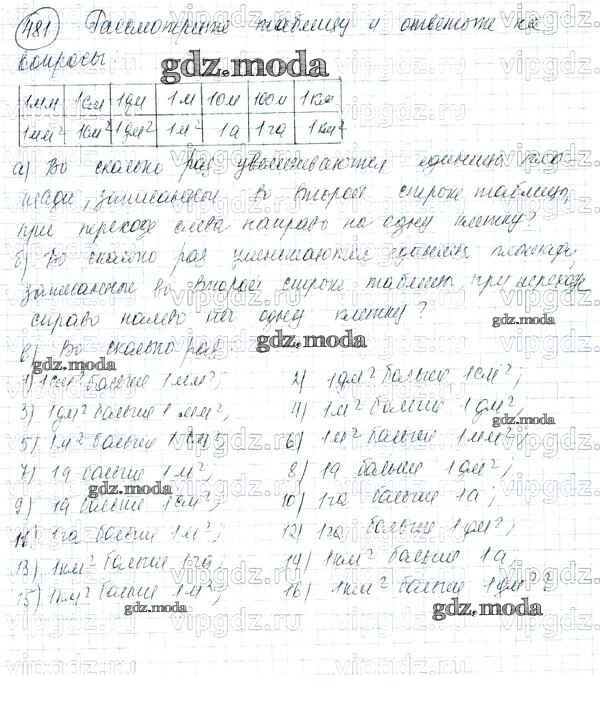 481) Рассмотрите таблицу и ответьте на
вопросы:
gdz.moda
1мм 1см 1дм 1м 10м 100м 1км
1мм² 1см² 1дм² 1м² 1а 1га 1км²
а) Во сколько раз увеличиваются единицы пло
щади, записанные во второй строке таблицы,
при переходе слева направо на одну клетку?
б) Во сколько раз уменьшаются единицы площади,
записанные во второй строке таблицы, при переходе
справо налево на одну клетку?
gdz.moda
gdz.moda
в) Во сколько раз:
gdz.moda
1) 1см² больше 1мм²; 2) 1дм² больше 1см²;
3) 1дм² больше 1мм²; 4) 1м² больше 1дм²;
gdz.moda
5) 1м² больше 1см²; 6) 1м² больше 1мм²;
7) 1а больше 1м²; 8) 1а больше 1дм²;
gdz.moda
9) 1а больше 1см²; 10) 1га больше 1а;
11) 1га больше 1м²; 12) 1га больше 1дм²;
13) 1км² больше 1га; 14) 1км² больше 1а
15) 1км² больше 1м²; 16) 1км² больше 1дм²?
gdz.moda
gdz.moda
vipgdz.ru